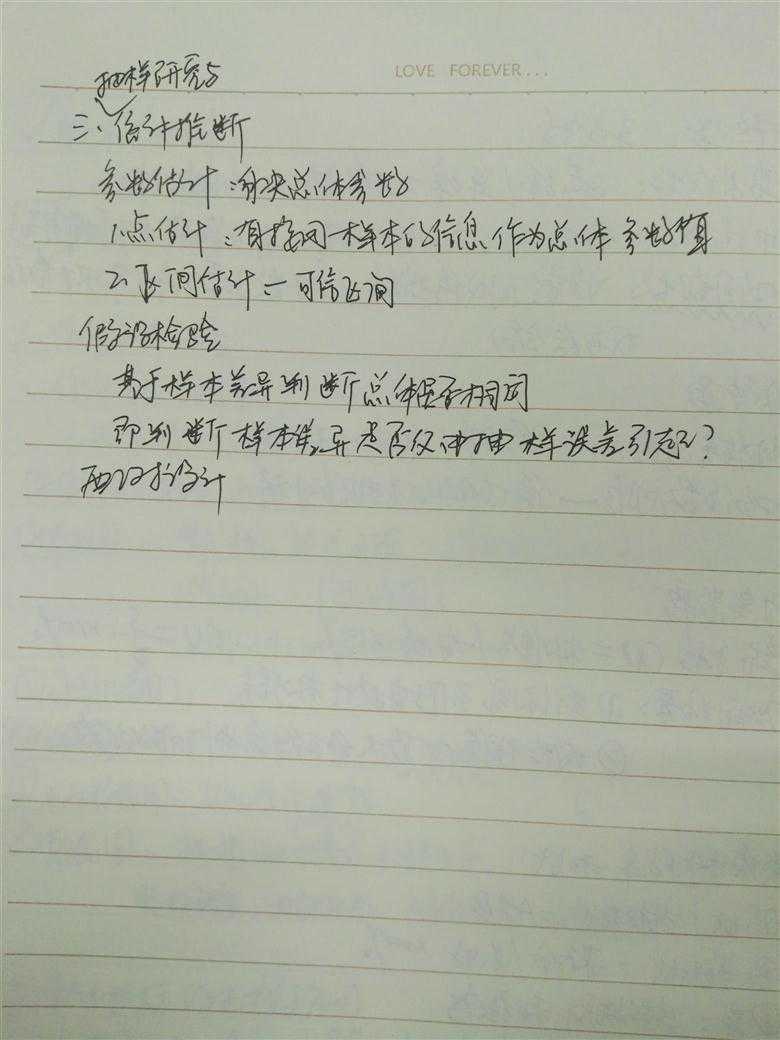 LOVE FOREVER...
抽样研究与
三、统计推断
参数估计：解决总体参数
1.点估计：直接用一样本的信息作为总体参数
2.区间估计 — 可信区间
假设检验
基于样本差异判断总体是否相同
即判断样本差异是否仅由抽样误差引起?
设计